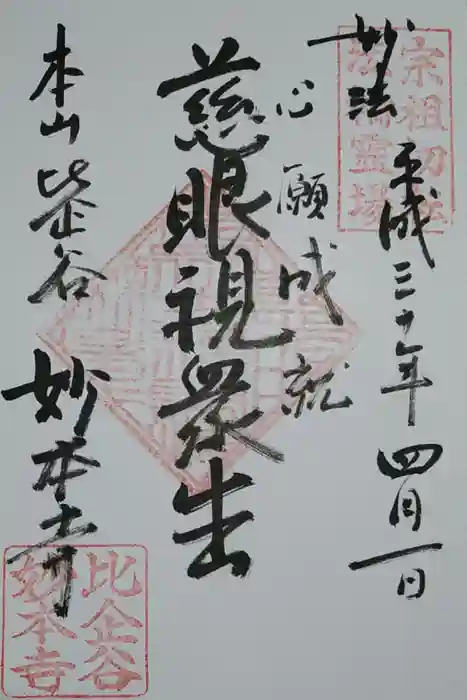 妙法
平成三十年四月一日
心願成就
慈眼視衆生
本山比企谷
妙本寺
宗祖初転
法輪霊場
比企谷
妙本寺